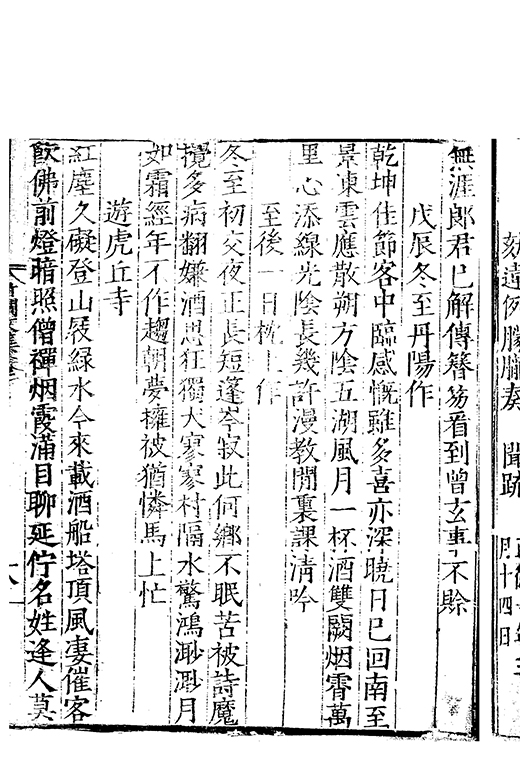 刻違例朦朧奏　聞疏
月十四日
無涯郎君已解傳簪笏看到曾玄事不賒
戊辰冬至丹陽作
乾坤佳節客中臨感慨雖多喜亦深曉日已回南至
景凍雲應散朔方陰五湖風月一杯酒雙闕烟霄萬
里心添線光陰長幾許漫教閒裏課清吟
至後一日枕上作
冬至初交夜正長短蓬岑寂此何鄉不眠苦被詩魔
攪多病翻嫌酒思狂獨犬寥寥村隔水驚鴻渺渺月
如霜經年不作趨朝夢擁被猶憐馬上忙
遊虎丘寺
紅塵久礙登山屐綠水今來載酒船塔頂風凄催客
飲佛前燈暗照僧禪烟霞滿目聊延佇名姓逢人莫